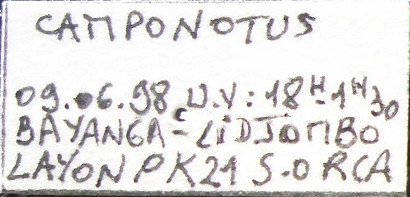 CAMPONOTUS
09.06.98 U.V: 18H-1H30
BAYANGA-LIDJOMBO
LAYON PK21 S.O RCA